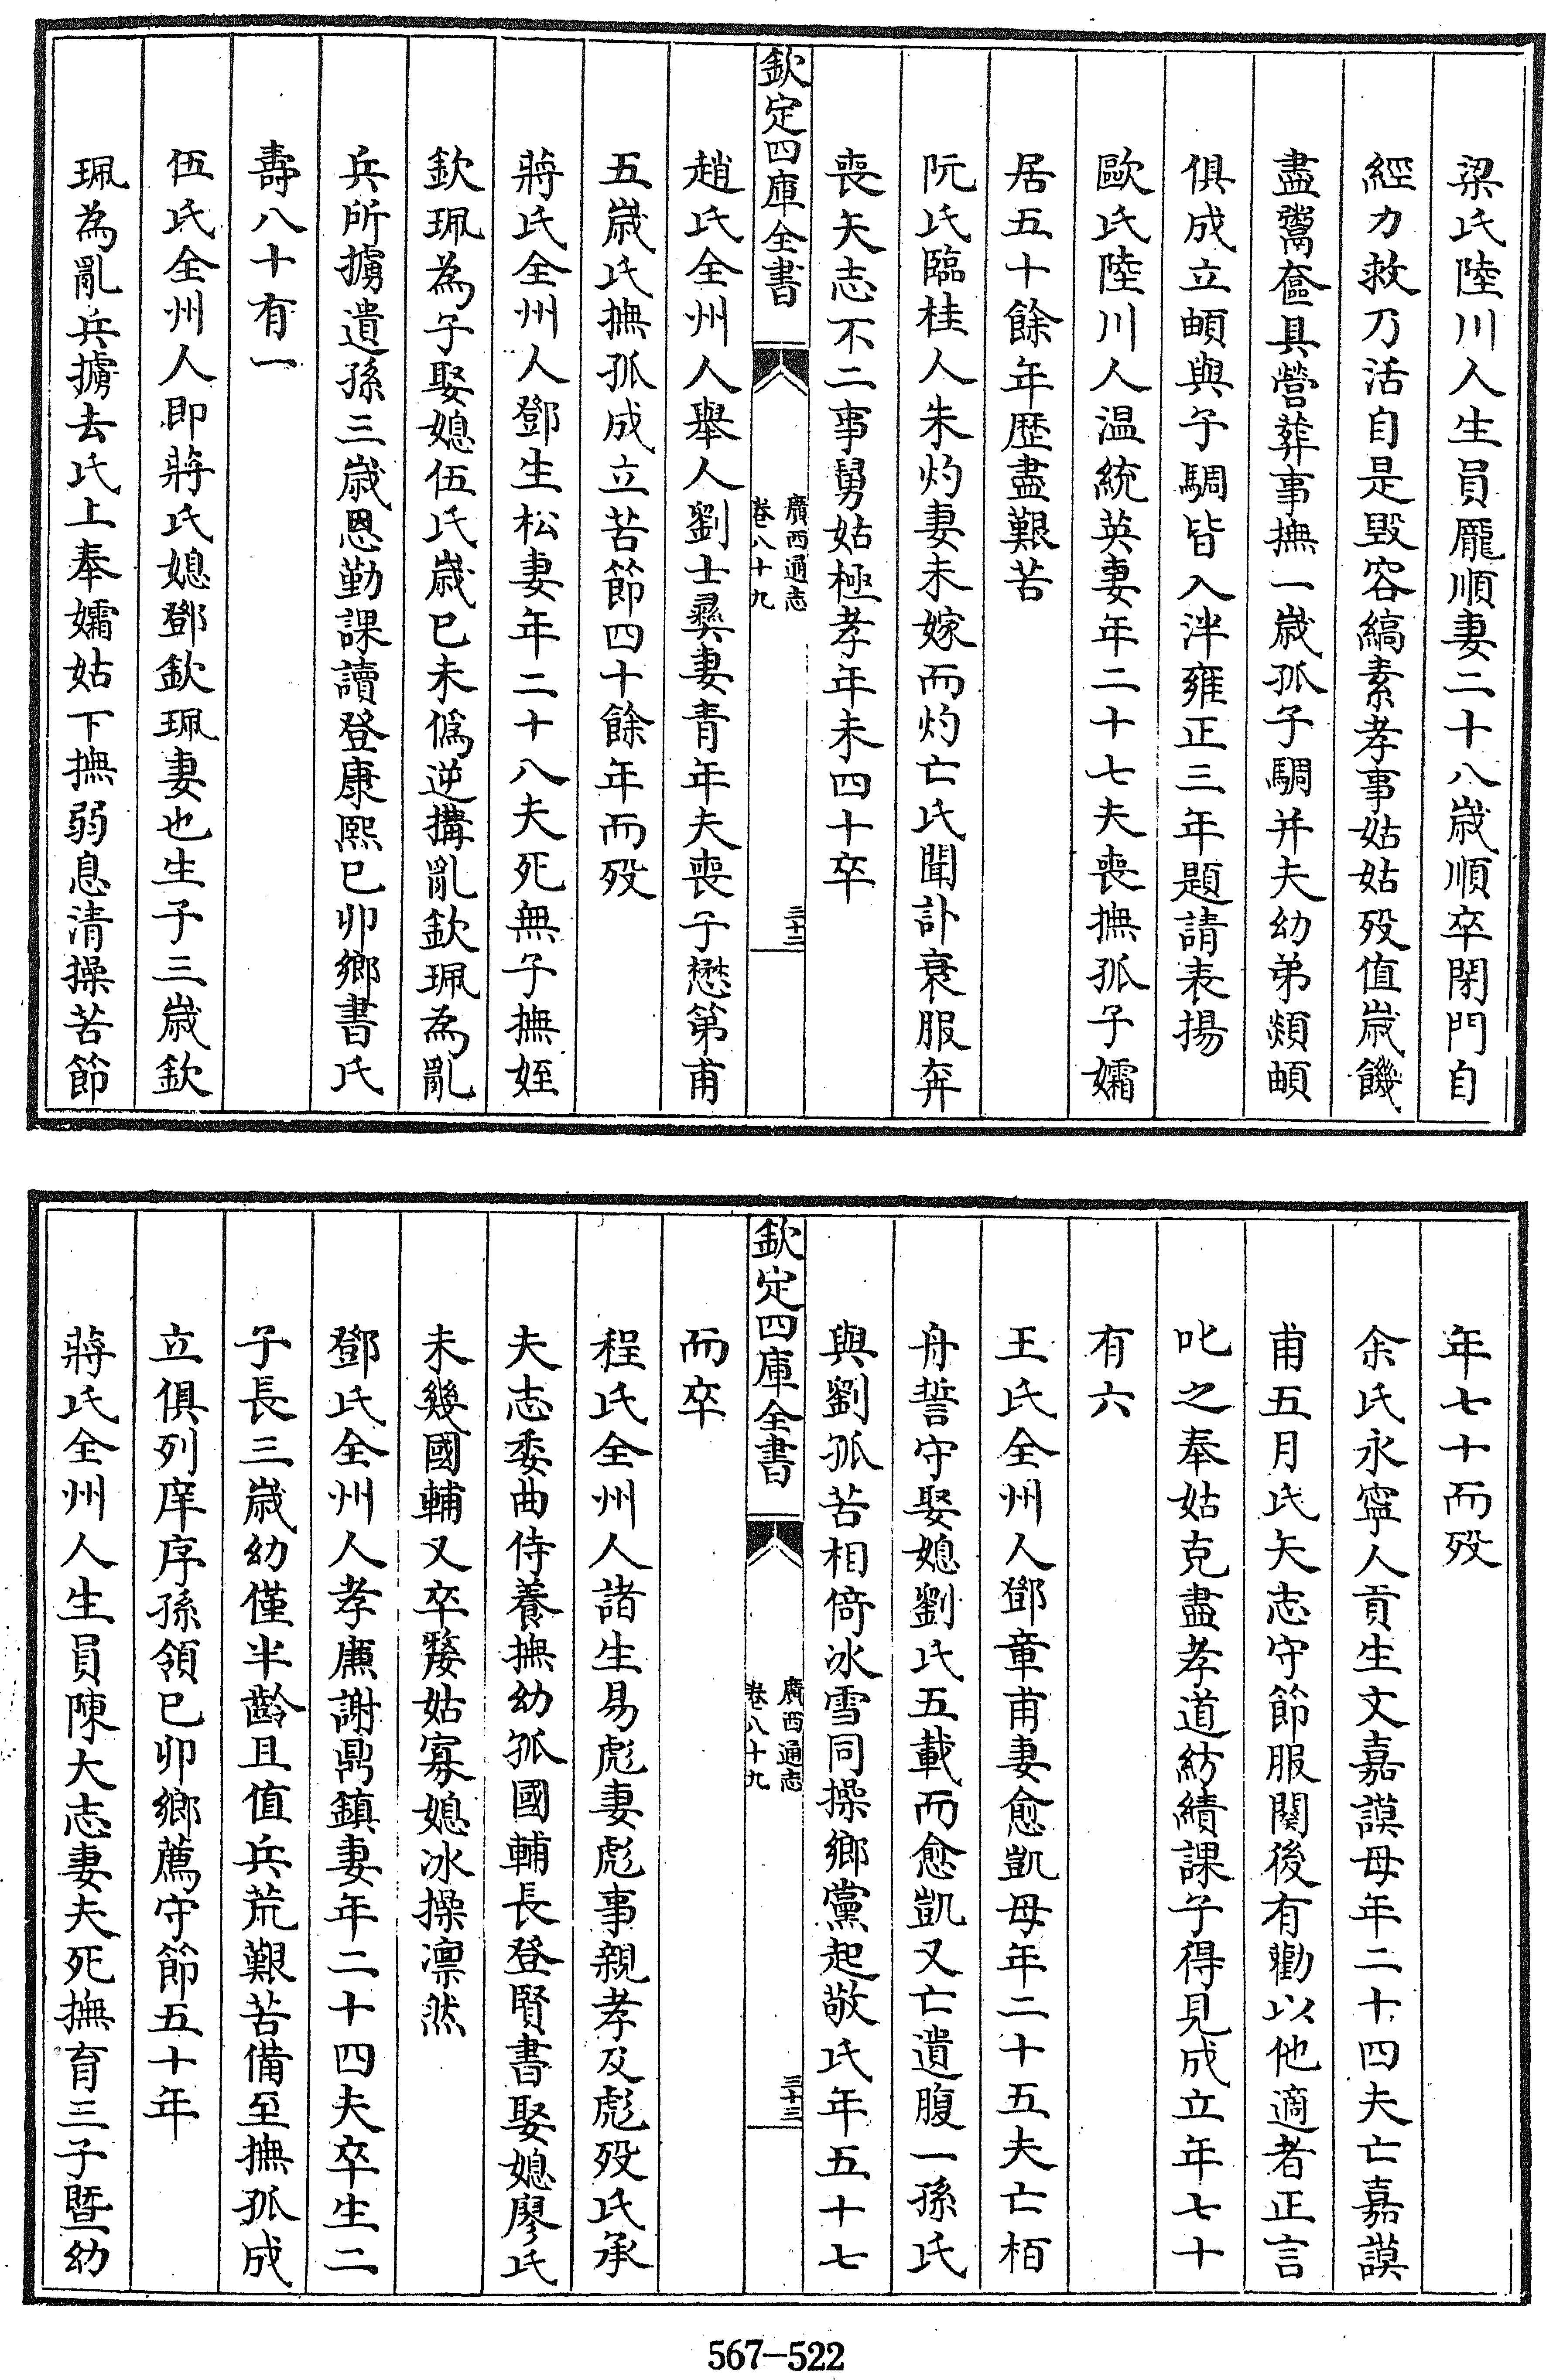 梁氏陸川人生員龎順妻二十八歳順卒閉門自
經力救乃活自是毀容縞素孝事姑姑殁值歲饑
盡鬻奩具營葬事撫一歲孤子騆并夫幼弟頫䪼
俱成立䪼與子騆皆入泮雍正三年題請表揚
歐氏陸川人温統英妻年二十七夫喪撫孤子孀
居五十餘年歴盡艱苦
阮氏臨桂人朱灼妻未嫁而灼亡氏聞訃衰服奔
喪矢志不二事舅姑極孝年未四十卒
欽定四庫全書
廣西通志
卷八十九
三十二
趙氏全州人舉人劉士彛妻青年夫喪子懋第甫
五歲氏撫孤成立苦節四十餘年而殁
蔣氏全州人鄧生松妻年二十八夫死無子撫姪
欽珮為子娶媳伍氏歲已未僞逆搆亂欽珮為亂
兵所擄遺孫三歲恩勤課讀登康熙已卯鄉書氏
壽八十有一
伍氏全州人即蔣氏媳鄧欽珮妻也生子三歲欽
珮為亂兵擄去氏上奉孀姑下撫弱息清操苦節
年七十而殁
余氏永寧人貢生文嘉謨母年二十四夫亡嘉謨
甫五月氏矢志守節服闋後有勸以他適者正言
叱之奉姑克盡孝道紡績課子得見成立年七十
有六
王氏全州人鄧章甫妻愈凱母年二十五夫亡栢
舟誓守娶媳劉氏五載而愈凱又亡遺腹一孫氏
與劉孤苦相倚冰雪同操鄉黨起敬氏年五十七
欽定四庫全書
廣西通志
卷八十九
三十三
而卒
程氏全州人諸生易彪妻彪事親孝及彪殁氏承
夫志委曲侍養撫幼孤國輔長登賢書娶媳廖氏
未幾國輔又卒嫠姑寡媳冰操凛然
鄧氏全州人孝廉謝鼎鎮妻年二十四夫卒生二
子長三歲幼僅半齡且值兵荒艱苦備至撫孤成
立俱列庠序孫領已卯鄉薦守節五十年
蔣氏全州人生員陳大志妻夫死撫育三子曁幼
567-522